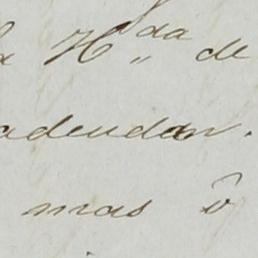 H,,da de
adeudan.
mas ô